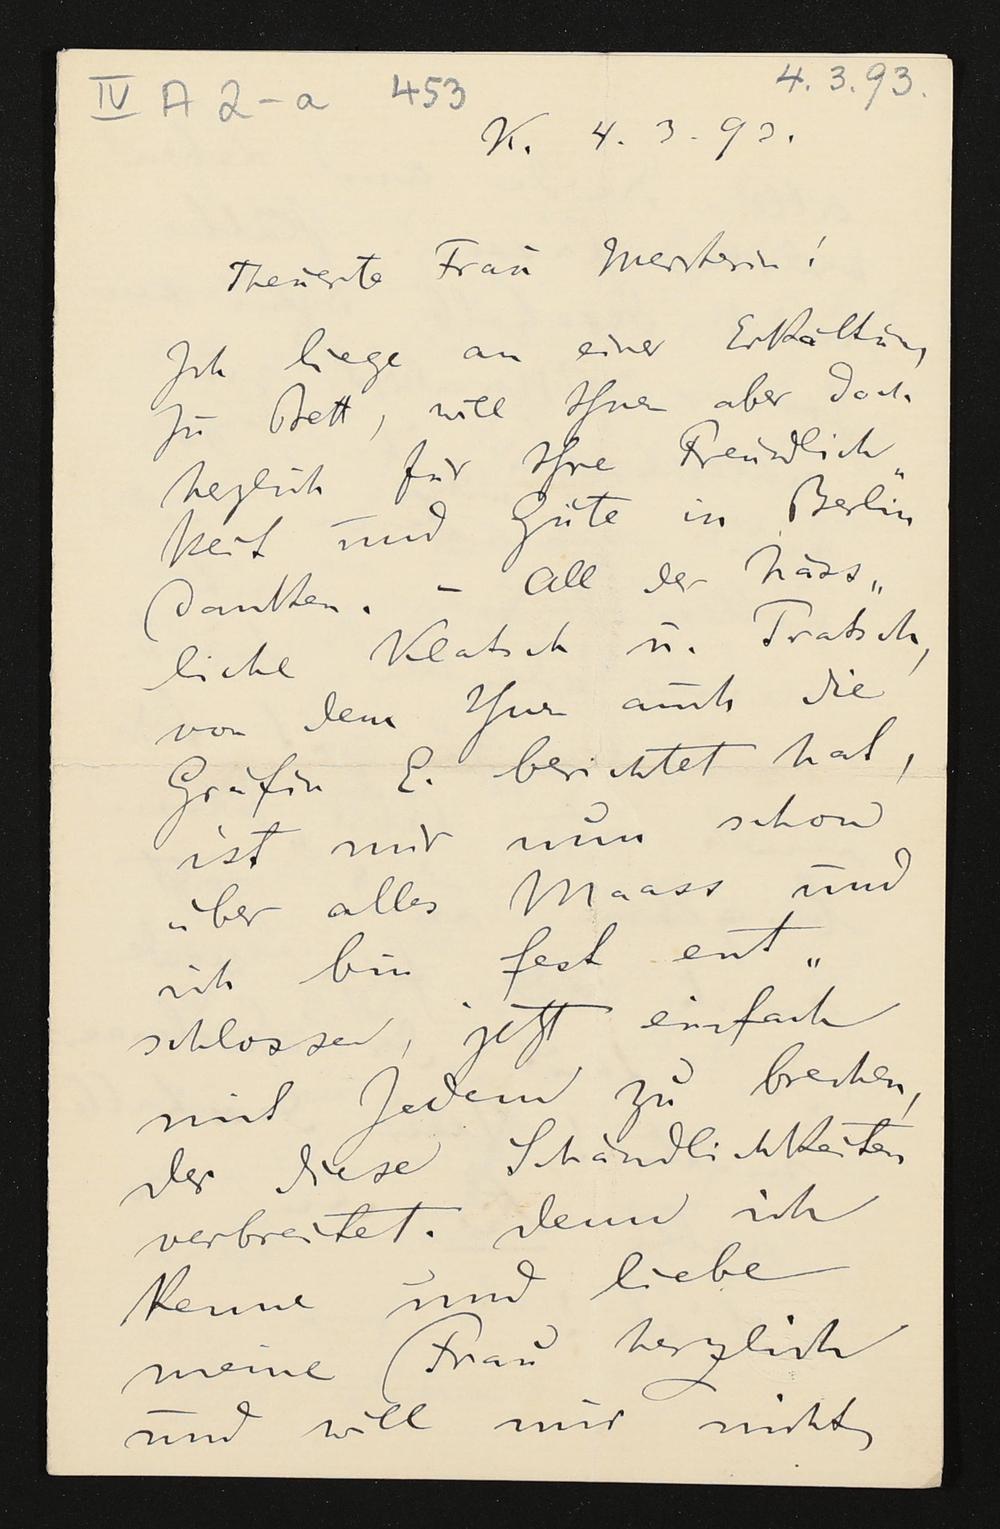 IV A 2-a 453 4.3.93.
K. 4.3.93.
Theuerste Frau Meisterin!
Ich liege an einer Erkältung
zu Bett, will Ihnen aber doch
herzlich für Ihre Freundlich„
keit und Güte in Berlin
danken. – All der häss„
liche Klatsch u. Tratsch,
von dem Ihnen auch die
Gräfin E. berichtet hat,
ist mir nun schon
über alles Maass und
ich bin fest ent„
schlossen, jetzt einfach
mit Jedem zu brechen,
der diese Schändlichkeiten
verbreitet. denn ich
kenne und liebe
meine Frau herzlich
und will mir nicht